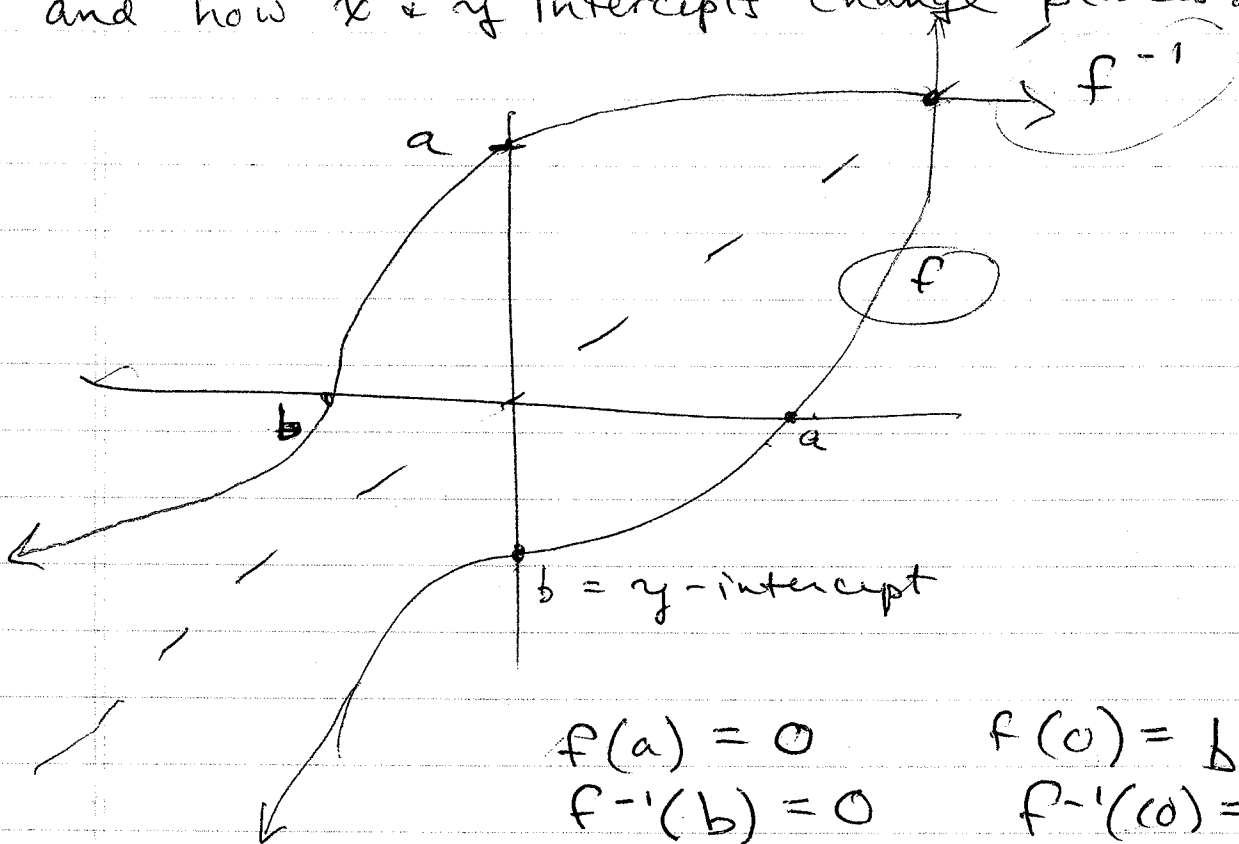 and how x & y intercepts change places
f⁻¹
a
f
b
a
b = y-intercept
f(a) = 0 f(0) = b
f⁻¹(b) = 0 f⁻¹((0) =